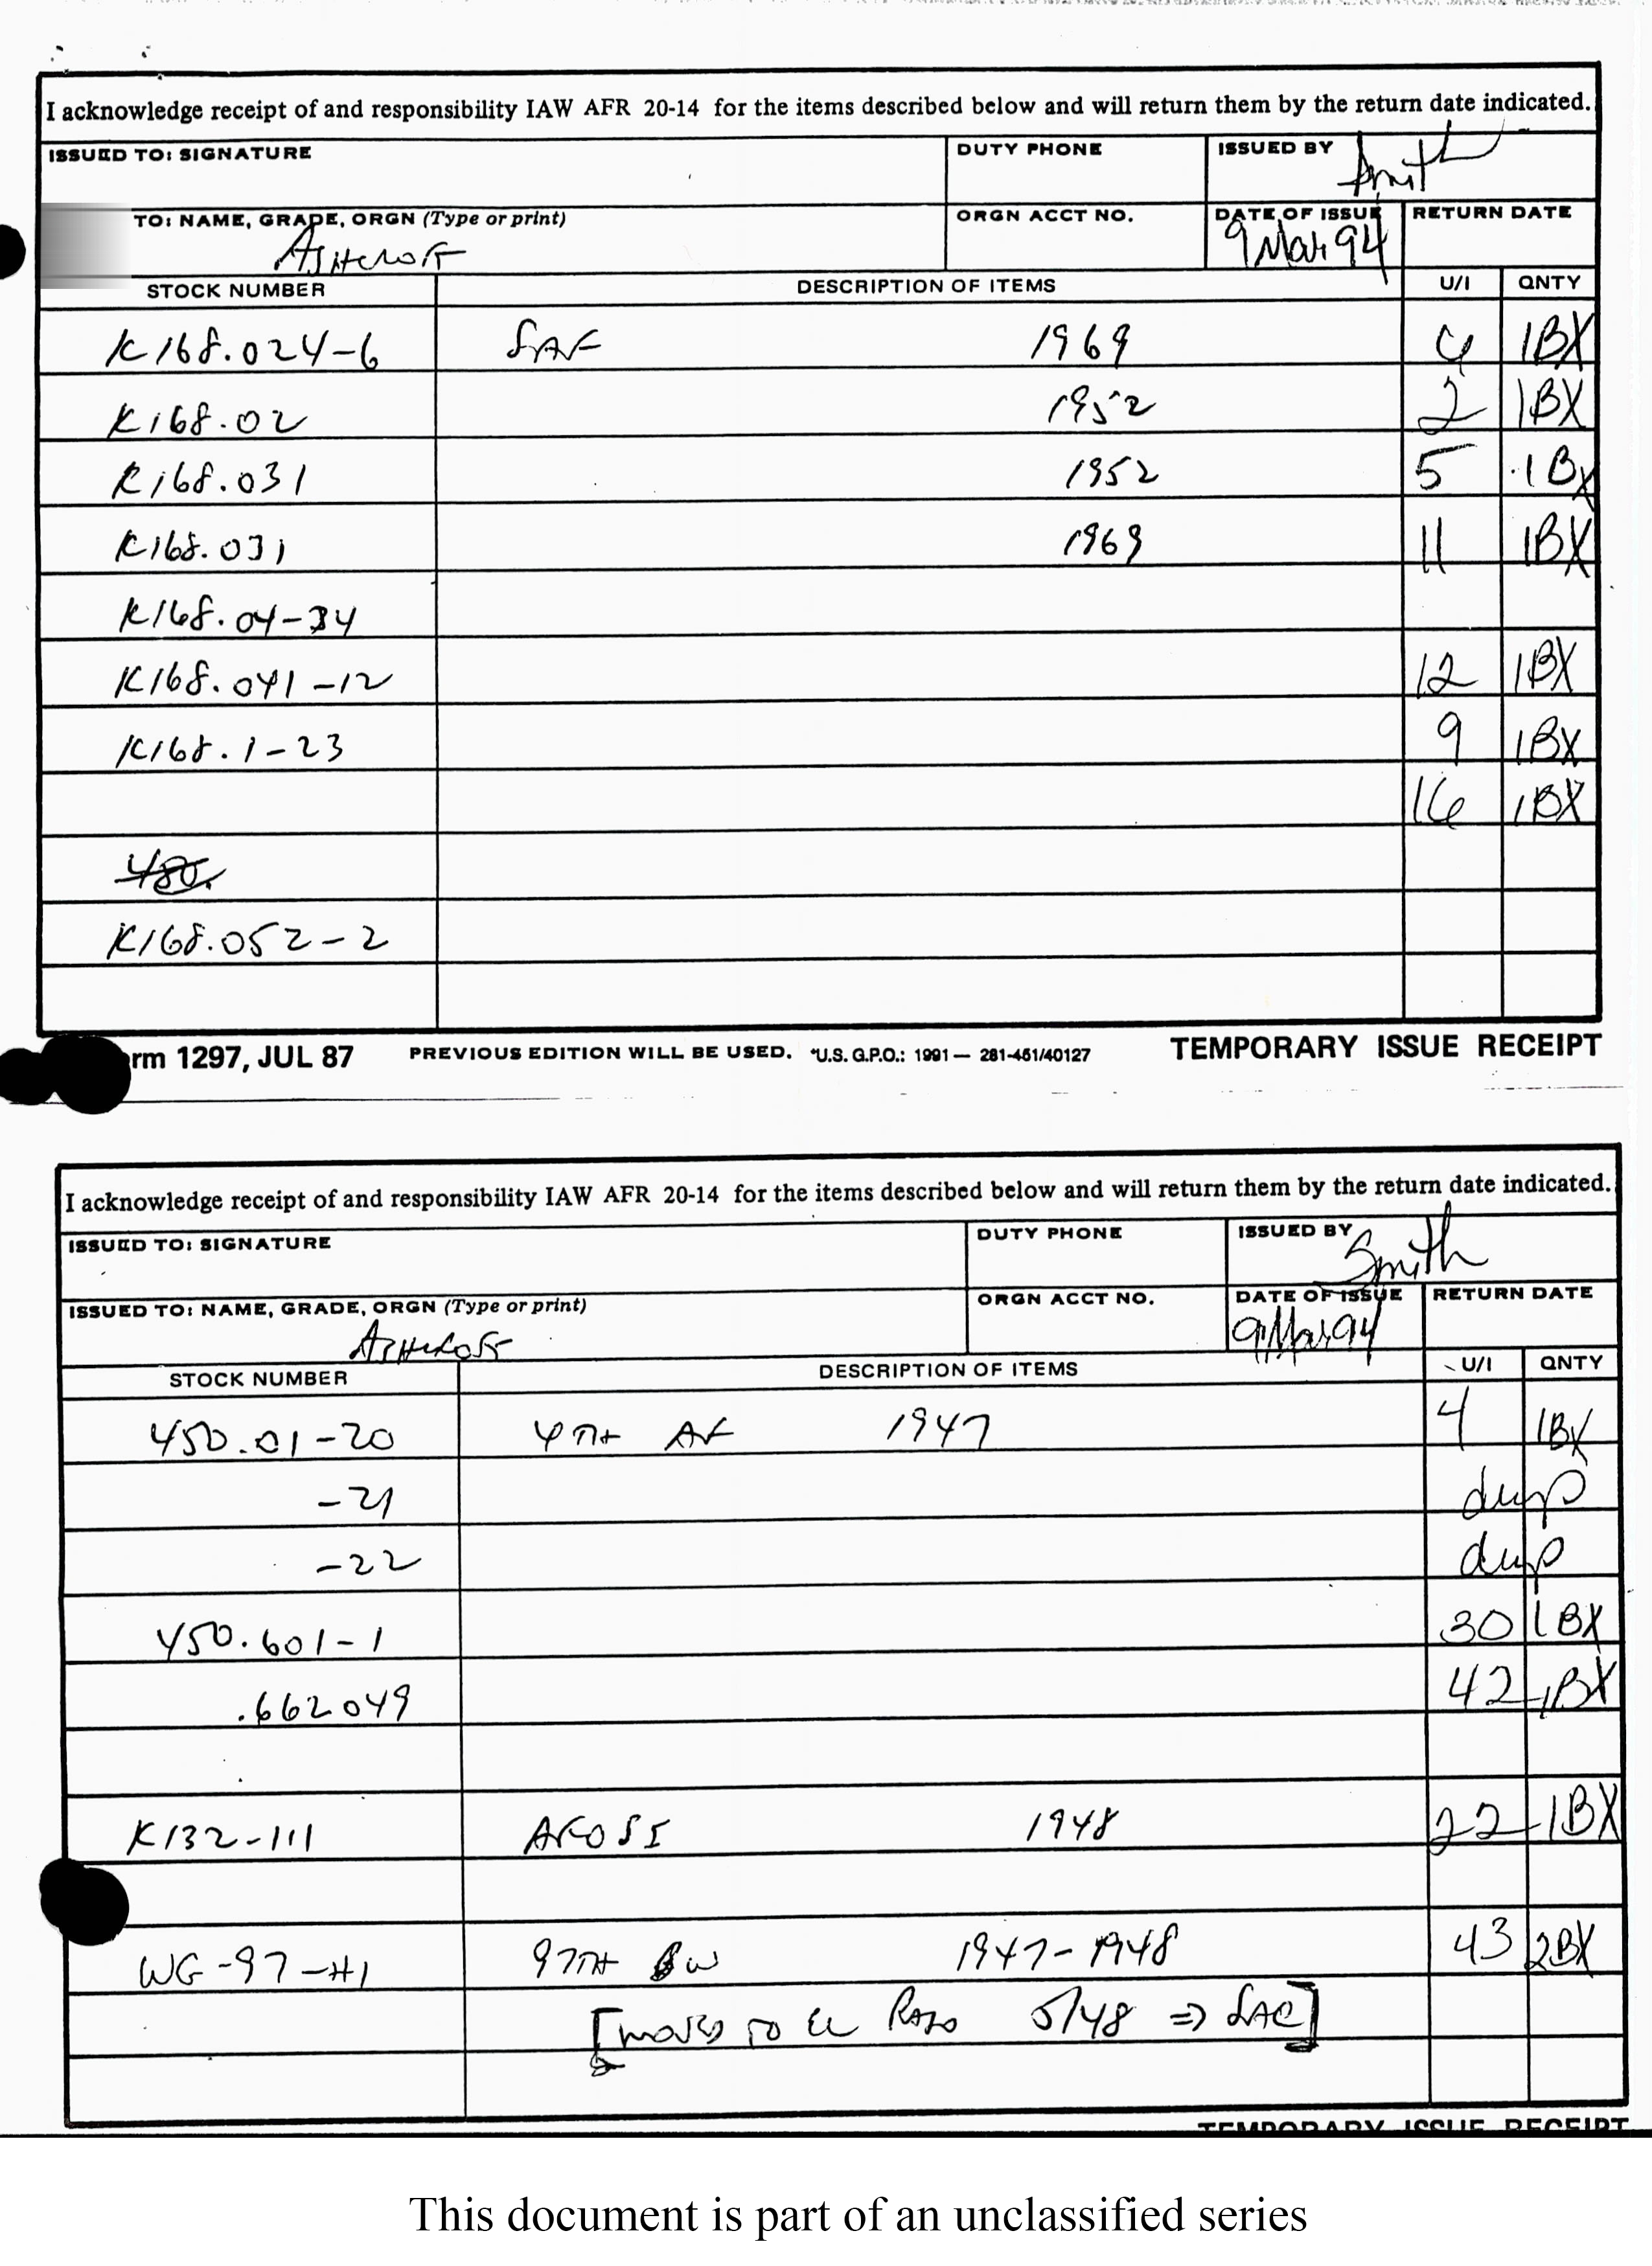 I acknowledge receipt of and responsibility IAW AFR 20-14 for the items described below and will return them by the return date indicated.
ISSUED TO: SIGNATURE DUTY PHONE ISSUED BY Smith
TO: NAME, GRADE, ORGN (Type or print) ORGN ACCT NO. DATE OF ISSUE RETURN DATE
Ashcroft 9 Mar 94
STOCK NUMBER DESCRIPTION OF ITEMS U/I QNTY
K168.024-6 SAF 1969 4 1BX
K168.02 1952 2 1BX
K168.031 1952 5 1BX
K168.031 1969 11 1BX
K168.04-34
K168.041-12 12 1BX
K168.1-23 9 1BX
16 1BX
480.
K168.052-2
rm 1297, JUL 87 PREVIOUS EDITION WILL BE USED. *U.S. G.P.O.: 1991 — 281-461/40127 TEMPORARY ISSUE RECEIPT
I acknowledge receipt of and responsibility IAW AFR 20-14 for the items described below and will return them by the return date indicated.
ISSUED TO: SIGNATURE DUTY PHONE ISSUED BY Smith
ISSUED TO: NAME, GRADE, ORGN (Type or print) ORGN ACCT NO. DATE OF ISSUE RETURN DATE
Ashcroft 9 Mar 94
STOCK NUMBER DESCRIPTION OF ITEMS U/I QNTY
450.01-20 4TH AF 1947 4 1BX
-21 dup
-22 dup
450.601-1 30 1BX
.662049 42 1BX
K132-111 AFOSI 1948 22 1BX
WG-97-HI 97TH BW 1947-1948 43 2BX
[moves to El Paso 5/48 ⇒ SAC]
TEMPORARY ISSUE RECEIPT
This document is part of an unclassified series